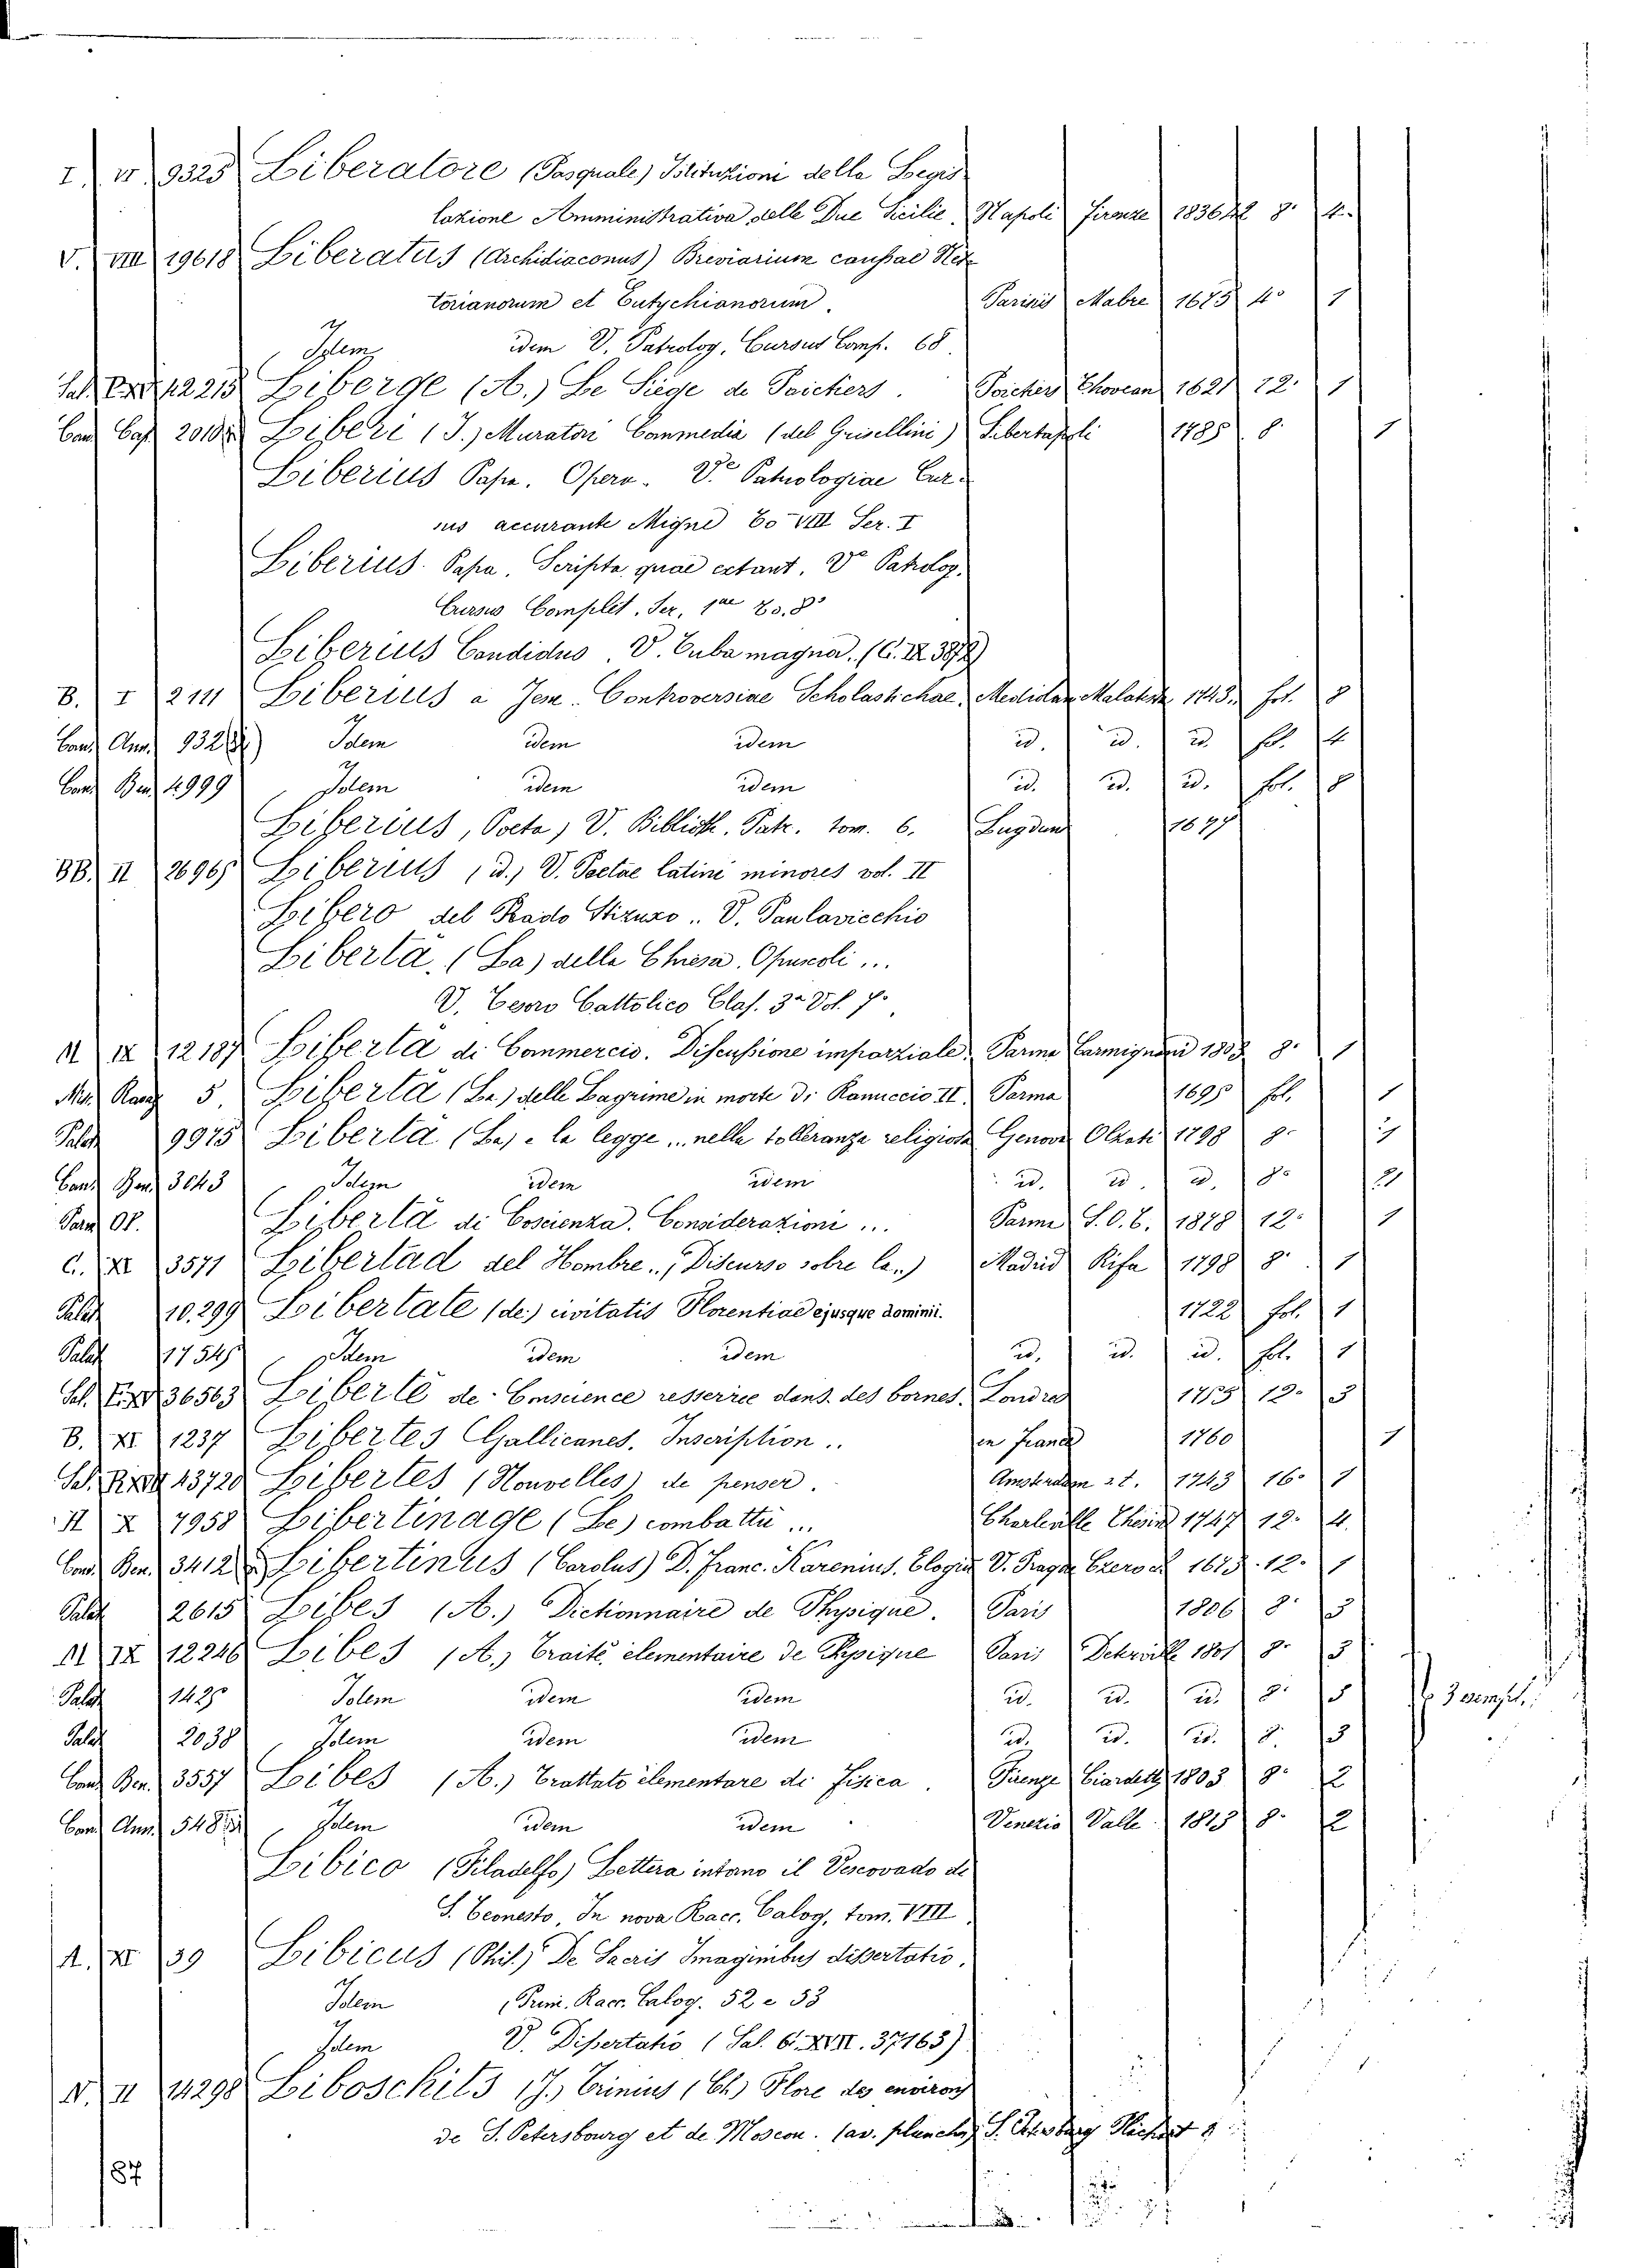 I. VI. 9325 Liberatore (Pasquale) Istituzioni della Legis
lazione Amministrativa delle Due Sicilie. Napoli Firenze 1836 8° 4.
V. VIII 19618 Liberatus (Archidiaconus) Breviarium caussae Nes
torianorum et Eutychianorum. Parisiis Mabre 1675 4° 1
Idem idem V. Patrolog. Cursus Comp. 68.
Sal. 42215 Liberge (A.) Le Siège de Poictiers. Poictiers Thorean 1621 12° 1
Con Cap 2010 Liberi (J.) Muratori Commedia (del Grisellini) Libertapoli 1785 8° 1
Liberius Papa. Opera. V.e Patrologiae Cur-
sus accurante Migne To VIII Ser. I
Liberius Papa. Scripta quae extant. V.e Patrolog.
Cursus Complet. Ser. 1ae To. 8°
Liberius Candidus. V. Tuba magna. (C. IX 3872)
B. I 2111 Liberius a Jesu. Controversiae Scholasticae. Mediolan Malatesta 1743. fol. 8
Con Ann. 932 Idem idem idem id. id. id. fol. 4
Con Ben 4999 Idem idem idem id. id. id. fol. 8
Liberius, Poeta, V. Biblioth. Patr. tom. 6. Lugdun 1677
BB. II 2696 Liberius (id.) V. Poetae latini minores vol. II
Libero del Rado Stizuxo.. V. Panlavicchio
Libertà. (La) della Chiesa. Opuscoli...
V. Tesoro Cattolico Clas. 3a Vol. 7°.
M IX 12187 Libertà di Commercio. Discussione imparziale. Parma Carmignani 1802 8° 1
Mis. Rang 5. Libertà (La) delle Lagrime in morte di Ranuccio II. Parma 1695 fol. 1
Palat 9975 Libertà (La) e la legge... nella tolleranza religiosa Genova Olzati 1798 8°
Con Ben 3043 Idem idem idem id. id. id. 8°
Parm OP. Libertà di Coscienza. Considerazioni ... Parma S.O.T. 1878 12° 1
C. XI 3571 Libertad del Hombre.. (Discurso sobre la..) Madrid Rifa 1798 8° 1
Palat 10.299 Libertate (de) civitatis Florentiae ejusque dominii. 1722 fol. 1
Palat 17545 Idem idem idem id. id. id. fol. 1
Sal. 36563 Liberté de Conscience resserrée dans des bornes. Londres 12° 3
B. XI 1237 Libertes Gallicanes. Inscription.. en France 1760 1
Sal. 43720 Libertes (Nouvelles) de penser. Amsterdam 1743 16° 1
II X 7958 Libertinage (Le) combattu ... Charleville Thesin 1747 12° 4.
Con. Ben. 3412 Libertinus (Carolus) D. Franc. Karenius. Elogiu V. Pragae 1673. 12° 1
Palat 2615 Libes (A.) Dictionnaire de Physique. Paris 1806 8° 3
M IX 12246 Libes (A.) Traité élementaire de Pysique Paris Deterville 1801 8° 3
Palat 1425 Idem idem idem id. id. id. 8° 3 3 esempl.
Palat 2038 Idem idem idem id. id. id. 8° 3
Con Ben. 3557 Libes (A.) Trattato elementare di Fisica. Firenze Ciardetti 1803 8° 2
Con Ann. 548 Idem idem idem Venezia Valle 1815 8° 2
Libico (Filadelfo) Lettera intorno il Vescovado di
S. Teonesto. In nova Racc. Calog. tom. VIII
A. XI 39 Libicus (Phil.) De Sacris Imaginibus dissertatio.
Idem (Prim. Racc. Calog. 52 e 53
Idem V. Dissertatio (Sal. 6. XVII. 37163)
N. II 14298 Liboschits (J.) Trinius (Ch.) Flore des environs
de S. Petersbourg et de Moscou. (av. planches) S. Petersburg
187